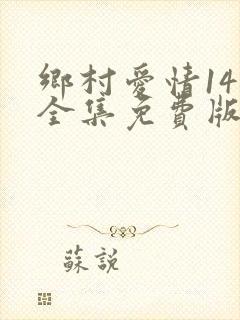 鄉村愛情14
全集免費版
蘇說